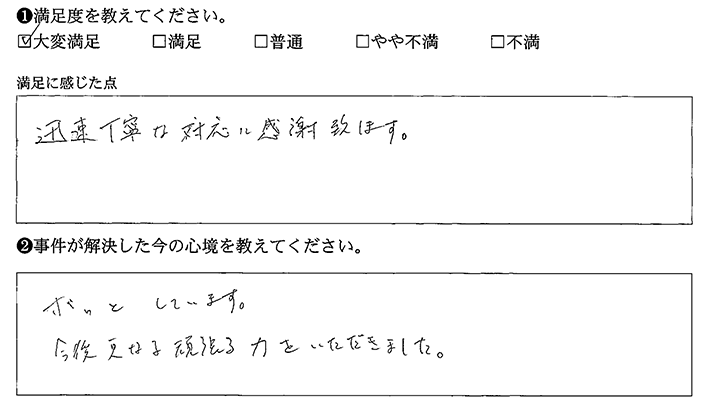 ❶満足度を教えてください。
☑大変満足 □満足 □普通 □やや不満 □不満
満足に感じた点
迅速丁寧な対応に感謝致します。
❷事件が解決した今の心境を教えてください。
ホッと しています。
今後更なる頑張る力をいただきました。